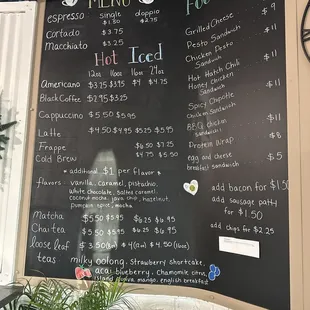 MENU
espresso single doppio
$1.80 $2.75
Cortado $3.75
Macchiato $3.25
Hot Iced
12oz 16oz 16oz 24oz
Americano $3.25 $3.75 $4 $4.75
Black Coffee $2.95 $3.25
Cappuccino $5.50 $5.95
Latte $4.50 $4.95 $5.25 $5.95
Frappe $6.50 $7.25
Cold Brew $4.75 $5.50
* additional $1 per flavor *
flavors - vanilla, caramel, pistachio,
white chocolate, salted caramel,
coconut mocha, java chip, hazelnut,
pumpkin spice, mocha
Matcha $5.50 $5.95 $6.25 $6.95
Chai tea $5.50 $5.95 $6.25 $6.95
loose leaf $3.50 $4 (12oz) $4.50 (16oz)
teas milky oolong, strawberry shortcake,
acai blueberry, chamomile citron,
island mango, english breakfast
Grilled Cheese $9
Pesto Sandwich $11
Chicken Pesto
Sandwich $11
Hot Hatch Chili
Honey Chicken
Sandwich $11
Spicy Chipotle
Chicken Sandwich $11
BBQ Chicken
Sandwich $11
Protein Wrap $8
egg and cheese
breakfast sandwich $5
add bacon for $1.50
add sausage patty
for $1.50
add chips for $2.25